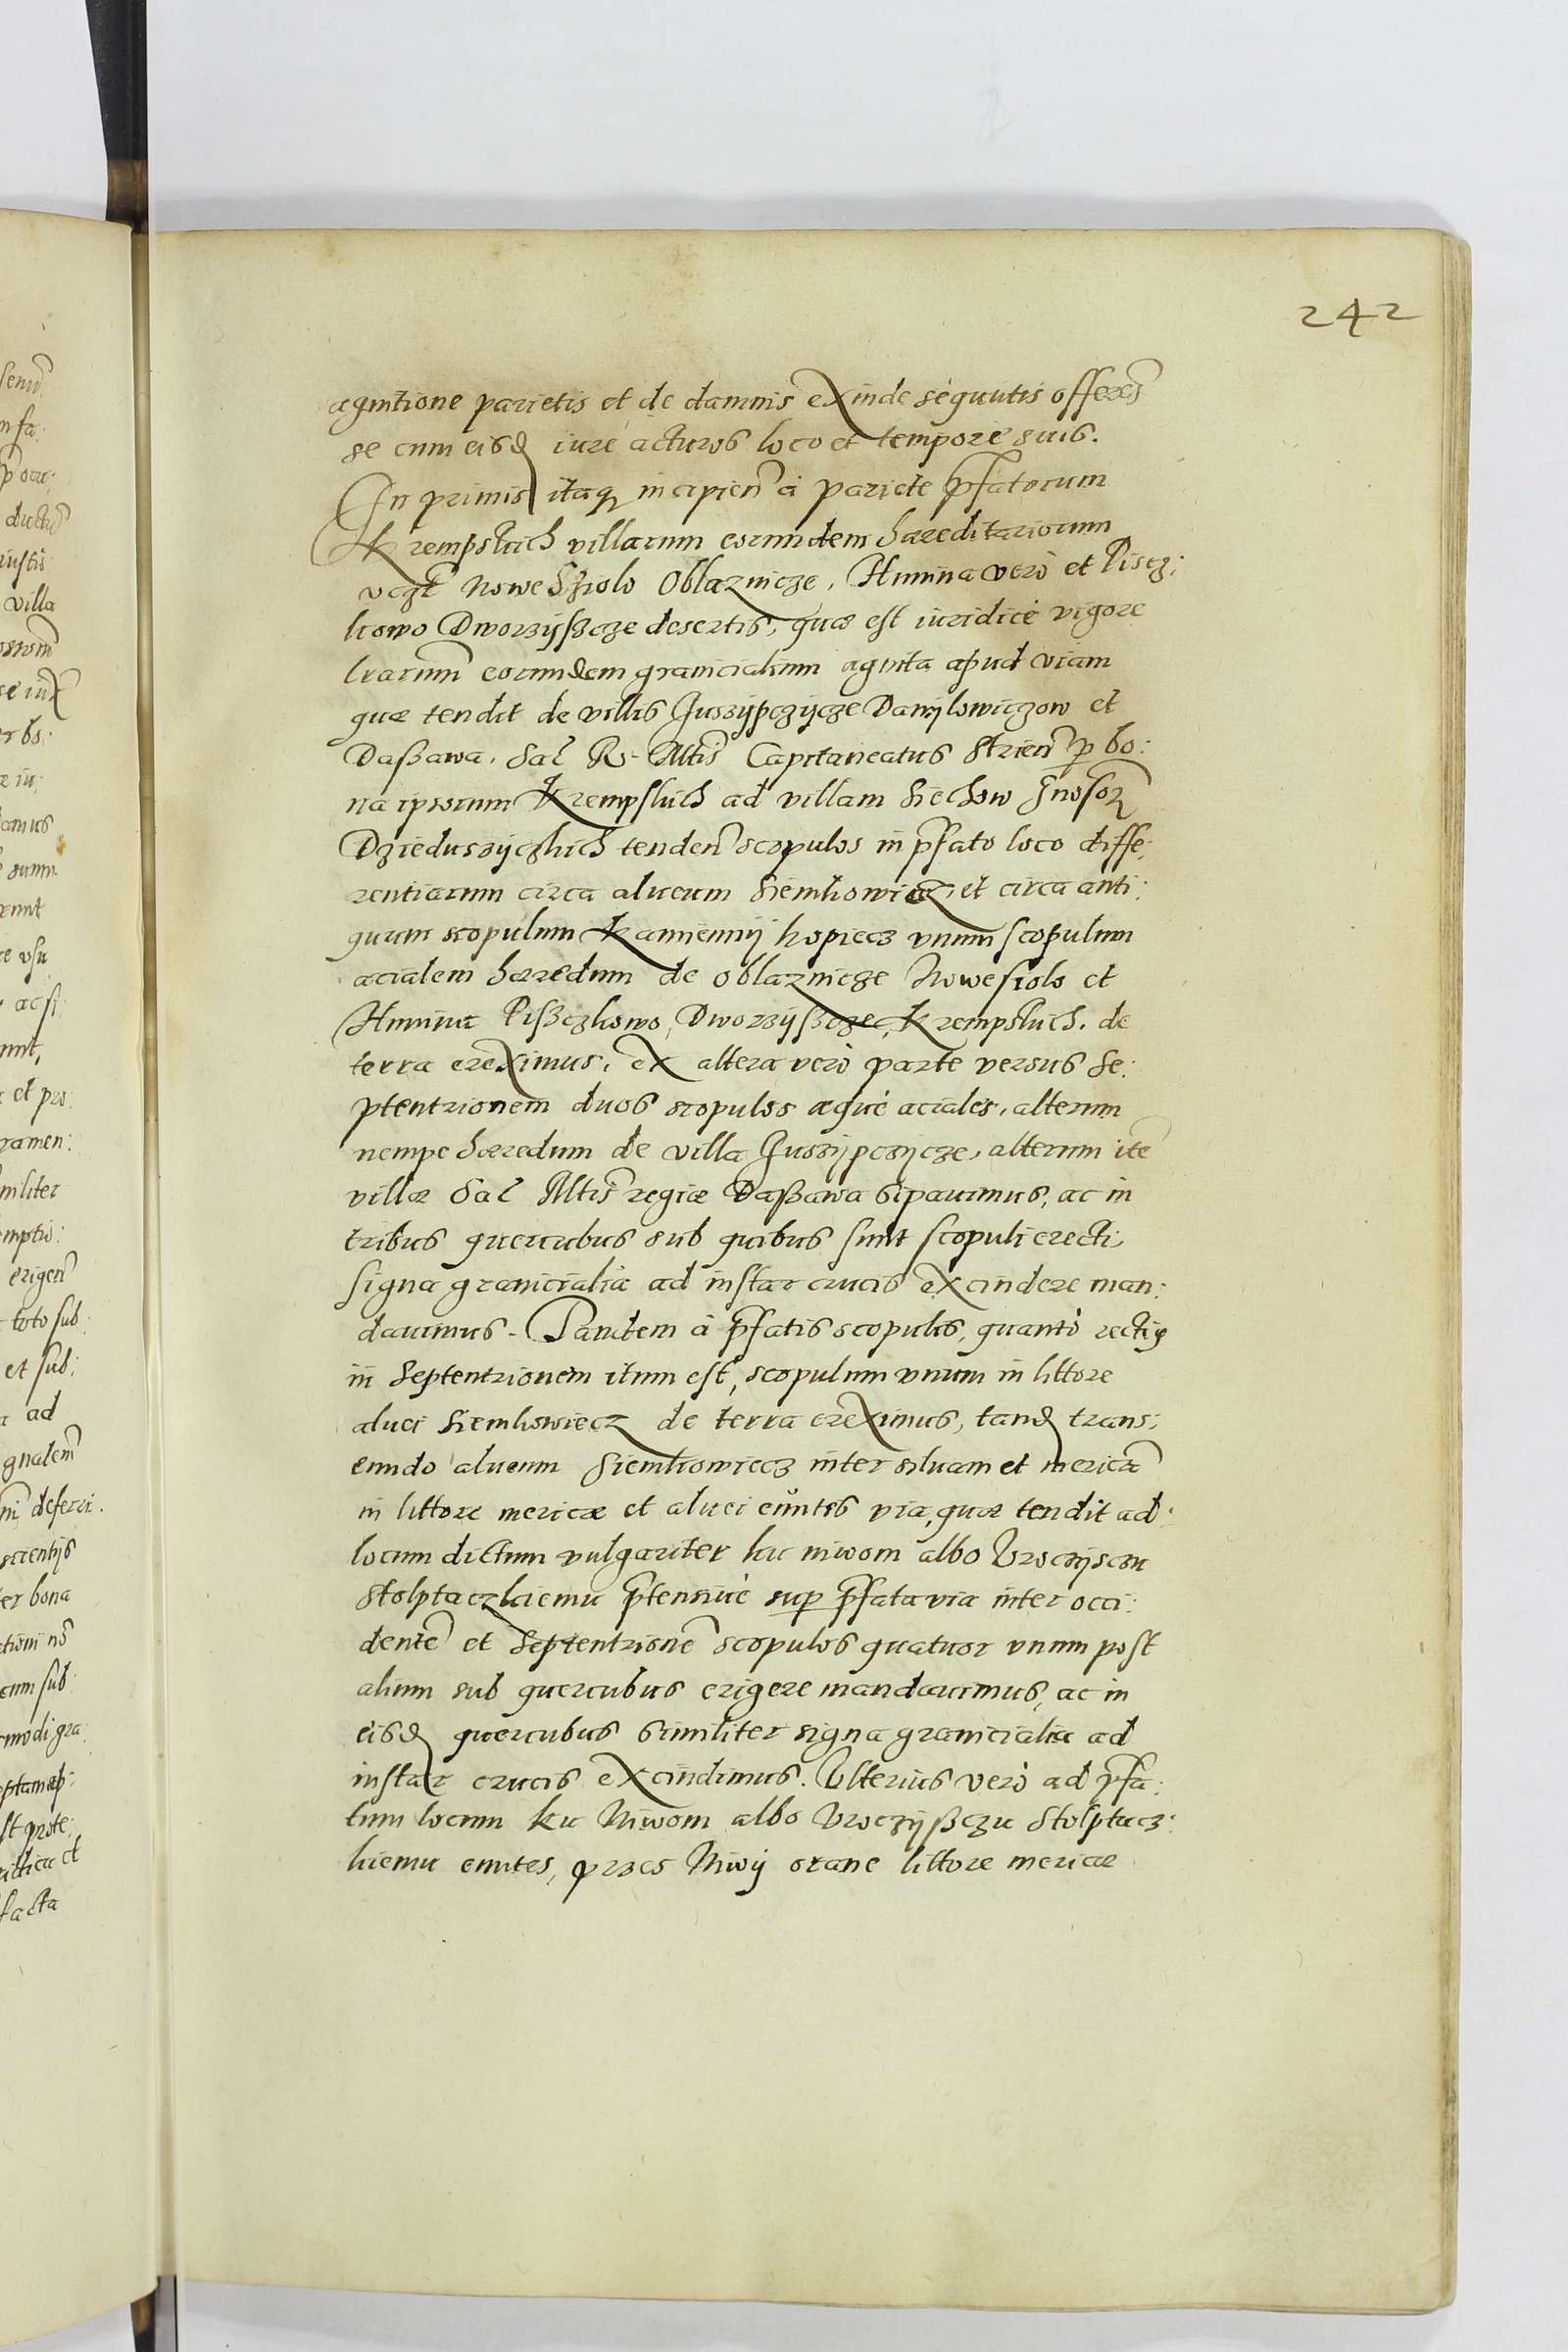 242
agnitione parietis et de damnis exinde sequutis offeren̄
se cum eisd iure acturos loco et tempore suis.
In primis itaq incipien̄ à pariete p̄fatorum
Krempskich villarum eorumdem haereditariorum
vcʒt Nowe Sziolo Oblaznicze, Humina verò et Piscz:
kowo Dworzyßcze desertis, quae est iuridicè vigore
l̄rarum eorumdem granicialium agnita apud viam
quae tendit de villis Juszypczycze Danylowiczow et
Daßawa, Sac̄ R. Mtis̄ Capitaneatus Strien̄ p bo:
na ipsorum Krempskich ad villam Siechow Gnosor̄
Dzieduszyczkich tenden̄ scopulos in p̄fato loco diffe:
rentiarum circa alueum Siemkowiecz, et circa anti:
quum scopulum Kamiennij kopiecz vnum scopulum
acialem haeredum de Oblaznicze Nowesiolo et
Humina Pißczkowo, Dworzyßcze, Krempskich. de
terra ereximus, ex altera verò parte versus Se:
ptentrionem duos scopulos aequè aciales, alterum
nempe haeredum de villa Juszypczycze, alterum ite̅
villae Sac̄ Mtis̄ regiae Daßawa sipauimus, ac in
tribus quercubus sub quibus sunt scopuli erecti,
signa granicialia ad instar crucis excindere man:
dauimus. Tandem à p̄fatis scopulis, quantò rectiꝰ
in Septentrionem itum est, scopulum vnum in littore
aluei Siemkowiecz de terra ereximus, tand trans:
eundo alueum Siemkowiecz inter siluam et merica̅
in littore mericae et aluei euntes via, quae tendit ad
locum dictum vulgariter ku niwom albo Vroczyscu
Stolptaczkiemu p̄tensiuè sup p̄fata via inter occi:
dente̅ et Septentrione̅ scopulos quatuor vnum post
alium sub quercubus erigere mandauimus, ac in
eisd quercubus similiter signa granicialia ad
instar crucis excindimus. Vlterius verò ad p̄fa:
tum locum ku Niwom albo Vroczyßczu Stolptacz:
kiemu euntes, przes Niwy orane littore mericae